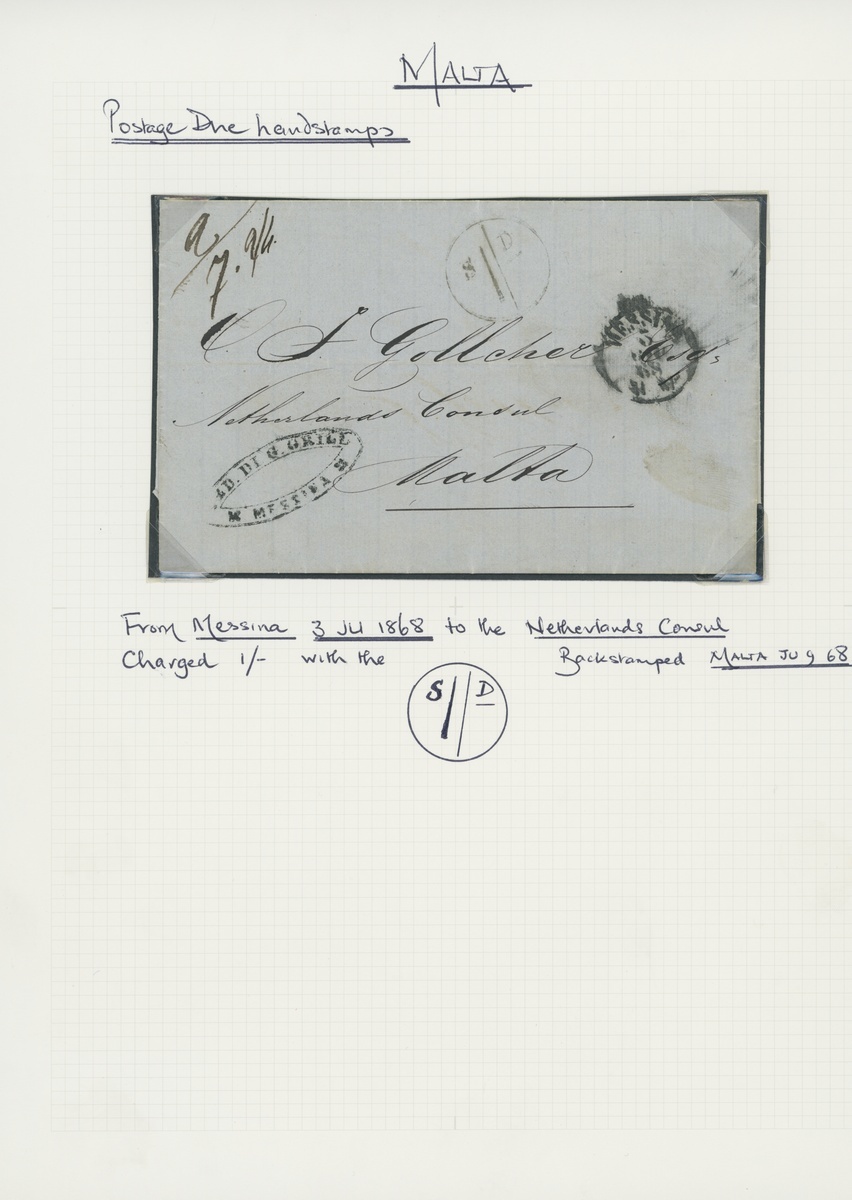 MALTA
Postage Due handstamps
S D.
MESSINA
O. F. Gollcher Esq.
Netherlands Consul
Malta
ED. DI G. GRILL
MESSINA
From Messina 3 JU 1868 to the Netherlands Consul
Charged 1/- with the Backstamped MALTA JU 9 68
S D